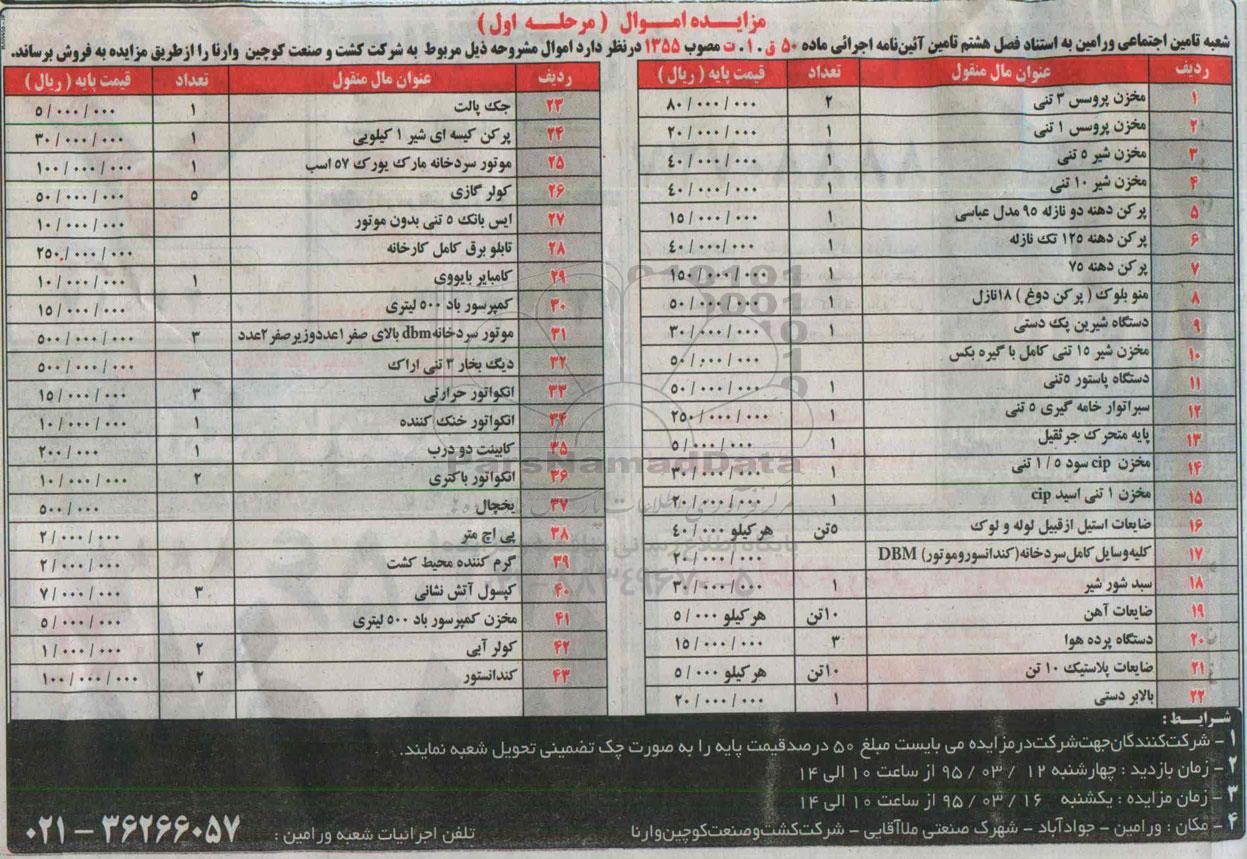 مزایده اموال ( مرحله اول )
شعبه تامین اجتماعی ورامین به استناد فصل هشتم تامین آئین‌نامه اجرائی ماده ۵۰ ق.ا.ت مصوب ۱۳۵۵ درنظر دارد اموال مشروحه ذیل مربوط به شرکت کشت و صنعت کوچین وارنا را ازطریق مزایده به فروش برساند.
ردیف عنوان مال منقول تعداد قیمت پایه ( ریال )
۱ مخزن پروسس ۳ تنی ۲ ۸۰/۰۰۰/۰۰۰
۲ مخزن پروسس ۱ تنی ۱ ۲۰/۰۰۰/۰۰۰
۳ مخزن شیر ۵ تنی ۱ ۴۰/۰۰۰/۰۰۰
۴ مخزن شیر ۱۰ تنی ۱ ۴۰/۰۰۰/۰۰۰
۵ پرکن دهنه دو نازله ۹۵ مدل عباسی ۱ ۱۵/۰۰۰/۰۰۰
۶ پرکن دهنه ۱۲۵ تک نازله ۱ ۴۰/۰۰۰/۰۰۰
۷ پرکن دهنه ۷۵ ۱ ۱۵۰/۰۰۰/۰۰۰
۸ منو بلوک ( پرکن دوغ ) ۱۸نازل ۱ ۵۰/۰۰۰/۰۰۰
۹ دستگاه شیرین پک دستی ۱ ۳۰/۰۰۰/۰۰۰
۱۰ مخزن شیر ۱۵ تنی کامل با گیره بکس ۵۰/۰۰۰/۰۰۰
۱۱ دستگاه پاستور ۵تنی ۱ ۵۰/۰۰۰/۰۰۰
۱۲ سپراتوار خامه گیری ۵ تنی ۱ ۲۵۰/۰۰۰/۰۰۰
۱۳ پایه متحرک جرثقیل ۱ ۵/۰۰۰/۰۰۰
۱۴ مخزن cip سود ۱/۵ تنی ۱ ۳۰/۰۰۰/۰۰۰
۱۵ مخزن ۱ تنی اسید cip ۱ ۲۰/۰۰۰/۰۰۰
۱۶ ضایعات استیل ازقبیل لوله و لوک ۵تن هرکیلو ۴۰/۰۰۰
۱۷ کلیه‌وسایل کامل‌سردخانه(کندانسوروموتور) DBM ۲۰/۰۰۰/۰۰۰
۱۸ سبد شور شیر ۱ ۳۰/۰۰۰/۰۰۰
۱۹ ضایعات آهن ۱۰تن هرکیلو ۵/۰۰۰
۲۰ دستگاه پرده هوا ۳ ۱۵/۰۰۰/۰۰۰
۲۱ ضایعات پلاستیک ۱۰ تن ۱۰تن هرکیلو ۵/۰۰۰
۲۲ بالابر دستی ۱ ۲۰/۰۰۰/۰۰۰
ردیف عنوان مال منقول تعداد قیمت پایه ( ریال )
۲۳ جک پالت ۱ ۵/۰۰۰/۰۰۰
۲۴ پرکن کیسه ای شیر ۱ کیلویی ۱ ۳۰/۰۰۰/۰۰۰
۲۵ موتور سردخانه مارک یورک ۵۷ اسب ۱ ۱۰۰/۰۰۰/۰۰۰
۲۶ کولر گازی ۵ ۵۰/۰۰۰/۰۰۰
۲۷ ایس بانک ۵ تنی بدون موتور ۱۰/۰۰۰/۰۰۰
۲۸ تابلو برق کامل کارخانه ۲۵۰/۰۰۰/۰۰۰
۲۹ کامبایر بایووی ۱ ۱۰/۰۰۰/۰۰۰
۳۰ کمپرسور باد ۵۰۰ لیتری ۱۵/۰۰۰/۰۰۰
۳۱ موتور سردخانه‌dbm بالای صفر۱عددوزیرصفر۲عدد ۳ ۵۰۰/۰۰۰/۰۰۰
۳۲ دیگ بخار ۳ تنی اراک ۵۰۰/۰۰۰/۰۰۰
۳۳ انکواتور حرارتی ۳ ۱۵/۰۰۰/۰۰۰
۳۴ انکواتور خنک کننده ۱ ۱۰/۰۰۰/۰۰۰
۳۵ کابینت دو درب ۱ ۲۰۰/۰۰۰
۳۶ انکواتور باکتری ۲ ۱۰/۰۰۰/۰۰۰
۳۷ یخچال ۵۰۰/۰۰۰
۳۸ پی اچ متر ۲/۰۰۰/۰۰۰
۳۹ گرم کننده محیط کشت ۲/۰۰۰/۰۰۰
۴۰ کپسول آتش نشانی ۳ ۷/۰۰۰/۰۰۰
۴۱ مخزن کمپرسور باد ۵۰۰ لیتری ۵/۰۰۰/۰۰۰
۴۲ کولر آبی ۲ ۱/۰۰۰/۰۰۰
۴۳ کندانستور ۲ ۱۰۰/۰۰۰/۰۰۰
ParsNamadData
شرایط :
۱ - شرکت‌کنندگان‌جهت‌شرکت‌درمزایده می بایست مبلغ ۵۰ درصدقیمت پایه را به صورت چک تضمینی تحویل شعبه نمایند.
۲ - زمان بازدید : چهارشنبه ۱۲ / ۰۳ / ۹۵ از ساعت ۱۰ الی ۱۴
۳ - زمان مزایده : یکشنبه ۱۶ / ۰۳ / ۹۵ از ساعت ۱۰ الی ۱۴
۴ - مکان : ورامین - جوادآباد - شهرک صنعتی ملاآقایی - شرکت‌کشت‌وصنعت‌کوچین‌وارنا
تلفن اجرائیات شعبه ورامین : ۳۶۲۶۶۰۵۷ - ۰۲۱